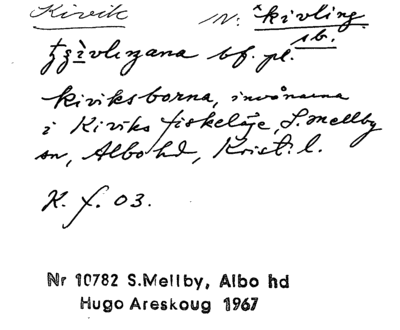 Kivik N. *kivling
sb.
bf. pl.
kiviksborna, invånarna
i Kiviks fiskeläge, S. Mellby
sn, Albo hd, Krist. l.
K. f. 03.
Nr 10782 S.Mellby, Albo hd
Hugo Areskoug 1967